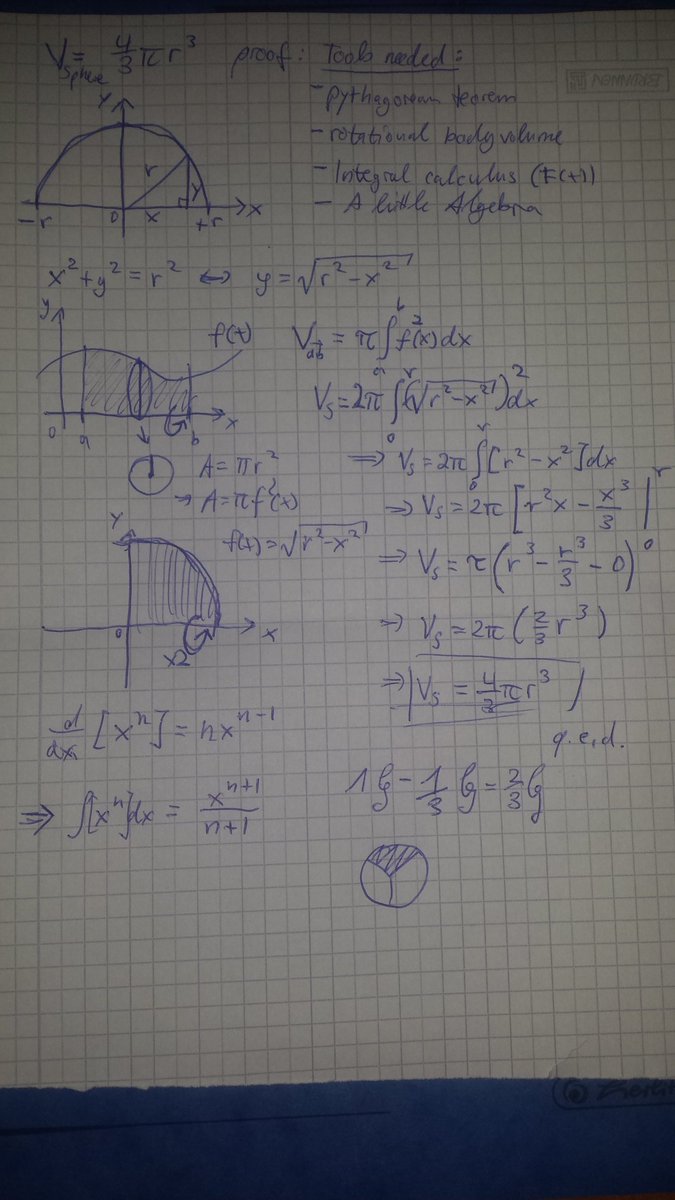 V_Sphere = 4/3 π r³ proof: Tools needed:
- pythagorean teorem
- rotational body volume
- Integral calculus (F(x))
- A little Algebra
y
r
y
-r 0 x +r x
x² + y² = r² ⇔ y = √(r² - x²)
y
f(x)
0 a b x
V_ab = π ∫_a^b f²(x) dx
V_s = 2π ∫_0^r (√(r² - x²))² dx
A = πr²
→ A = πf²(x)
⇒ V_s = 2π ∫_0^r [r² - x²] dx
⇒ V_s = 2π [r²x - x³/3 |_0^r
y
f(x) = √(r² - x²)
0 x
x2
⇒ V_s = π (r³ - r³/3 - 0)
⇒ V_s = 2π (2/3 r³)
⇒ |V_s = 4/3 πr³ |
q.e.d.
d/dx [xⁿ] = nxⁿ⁻¹
⇒ ∫[xⁿ]dx = xⁿ⁺¹/n+1